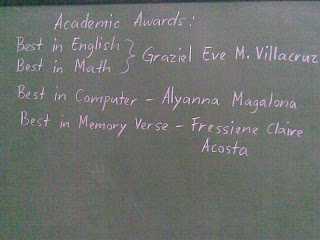 Academic Awards:
Best in English } Graziel Eve M. Villacruz
Best in Math
Best in Computer - Alyanna Magalona
Best in Memory Verse - Fressiene Claire
Acosta